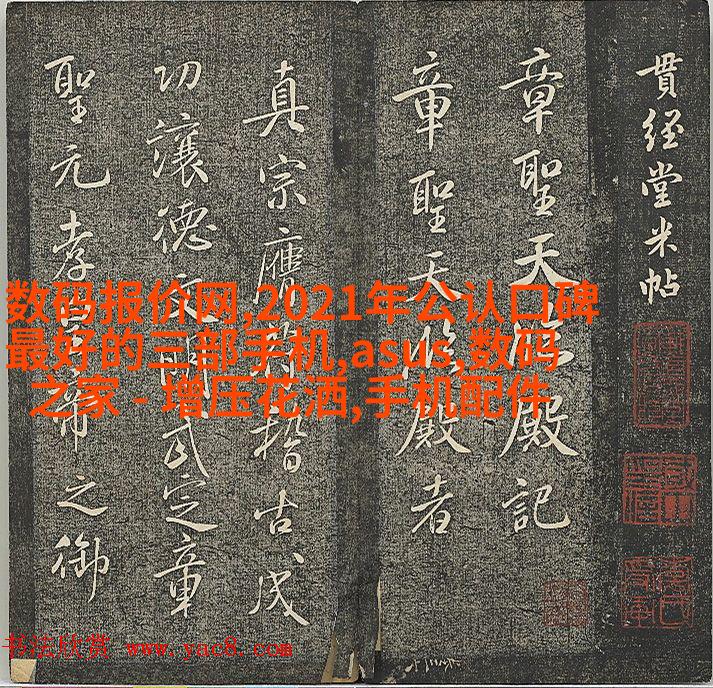 貫經堂米帖
章聖天臨殿記
章聖天臨殿者
真宗膺稽古成
功讓德文明武定章
聖元孝皇帝之御
数码报价网,2021年公认口碑
最好的三部手机,asus,数码
之家 - 增压花洒,手机配件
书法欣赏 www.yac8.com